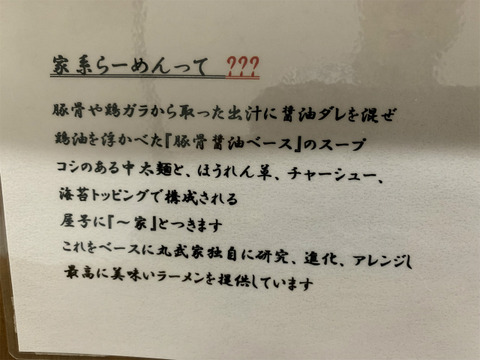 家系らーめんって ???
豚骨や鶏ガラから取った出汁に醤油ダレを混ぜ
鶏油を浮かべた『豚骨醤油ベース』のスープ
コシのある中太麺と、ほうれん草、チャーシュー、
海苔トッピングで構成される
屋号に『～家』とつきます
これをベースに丸武家独自に研究、進化、アレンジし
最高に美味いラーメンを提供しています